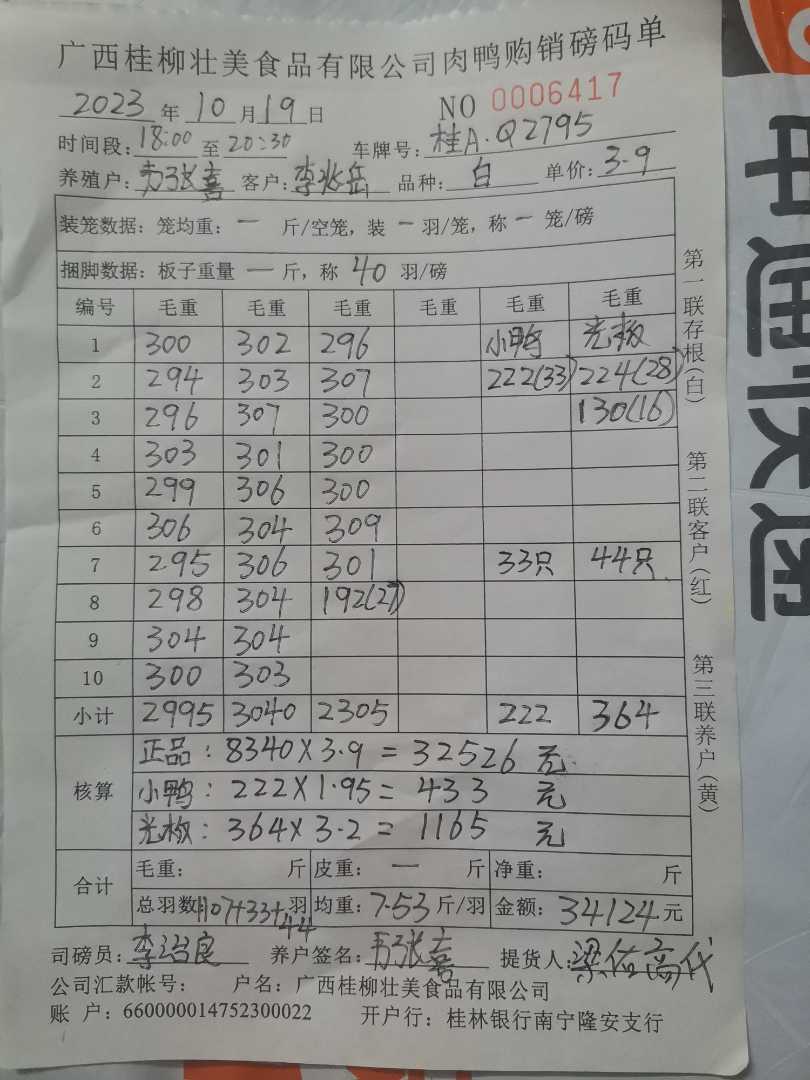 广西桂柳壮美食品有限公司肉鸭购销磅码单
2023 年 10 月 19 日 NO 0006417
时间段: 18:00 至 20:30 车牌号: 桂A·Q2795
养殖户: 韦张喜 客户: 李兆岳 品种: 白 单价: 3.9
装笼数据: 笼均重: 一 斤/空笼, 装 一 羽/笼, 称 一 笼/磅
捆脚数据: 板子重量 一 斤, 称 40 羽/磅
编号 毛重 毛重 毛重 毛重 毛重 毛重
1 300 302 296 小鸭 光板
2 294 303 307 222(33) 224(28)
3 296 307 300 130(16)
4 303 301 300
5 299 306 300
6 306 304 309
7 295 306 301 33只 44只
8 298 304 192(27)
9 304 304
10 300 303
小计 2995 3040 2305 222 364
核算 正品: 8340×3.9=32526 元
小鸭: 222×1.95=433 元
光板: 364×3.2=1165 元
合计 毛重: 斤 皮重: 一 斤 净重: 斤
总羽数: 1107+33+44 羽 均重: 7.53 斤/羽 金额: 34124 元
司磅员: 李治良 养户签名: 韦张喜 提货人: 梁佑高代
公司汇款帐号: 户名: 广西桂柳壮美食品有限公司
账 户: 660000014752300022 开户行: 桂林银行南宁隆安支行
第一联存根(白)
第二联客户(红)
第三联养户(黄)
中通快递